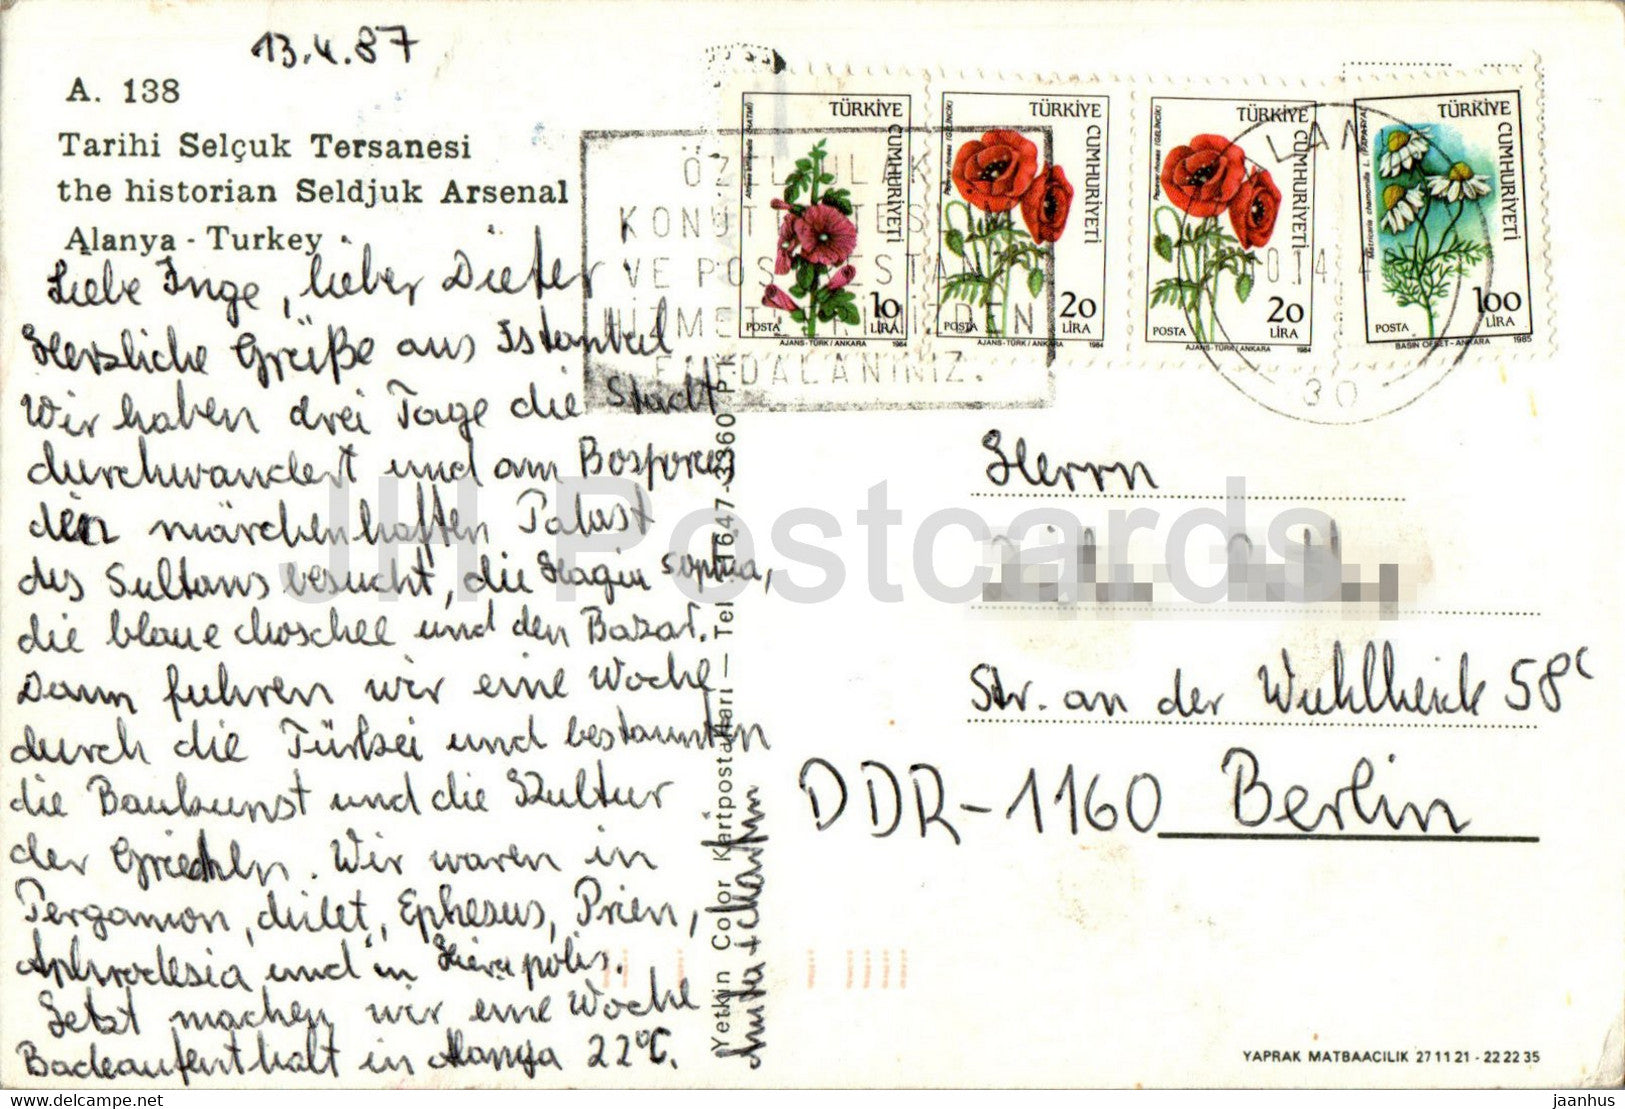 13.4.87
A. 138
Tarihi Selçuk Tersanesi
the historian Seldjuk Arsenal
Alanya - Turkey
Liebe Inge, lieber Dieter
Herzliche Grüße aus Istanbul
Wir haben drei Tage die Stadt
durchwandert und am Bosporus
den märchenhaften Palast
des Sultans besucht, die Hagia Sophia,
die blaue Moschee und den Bazar.
Dann fuhren wir eine Woche
durch die Türkei und bestaunten
die Baukunst und die Kultur
der Griechen. Wir waren in
Pergamon, Milet, Ephesus, Prien,
Aphrodesia und in Hierapolis.
Jetzt machen wir eine Woche
Badeaufenthalt in Alanya 22°C.
Yetkin Color Kartpostalları - Tel: 11647 - 3360 P.K.
TÜRKİYE CUMHURİYETİ
10 LİRA
POSTA
AJANS-TÜRK / ANKARA 1984
TÜRKİYE CUMHURİYETİ
Papaver rhoeas (GELİNCİK)
20 LİRA
POSTA
AJANS-TÜRK / ANKARA 1984
TÜRKİYE CUMHURİYETİ
Papaver rhoeas (GELİNCİK)
20 LİRA
POSTA
AJANS-TÜRK / ANKARA 1984
TÜRKİYE CUMHURİYETİ
Matricaria chamomilla L. (PAPATYA)
100 LİRA
POSTA
BASIN OFSET - ANKARA 1985
ÖZEL ULAK
KONUTTA TES
VE POSTRESTANT
HİZMETLERİMİZDEN
FAYDALANINIZ.
30
Herrn
Str. an der Wuhlheide 58c
DDR-1160 Berlin
YAPRAK MATBAACILIK 27 11 21 - 22 22 35
JH Postcards
delcampe.net
jaanhus